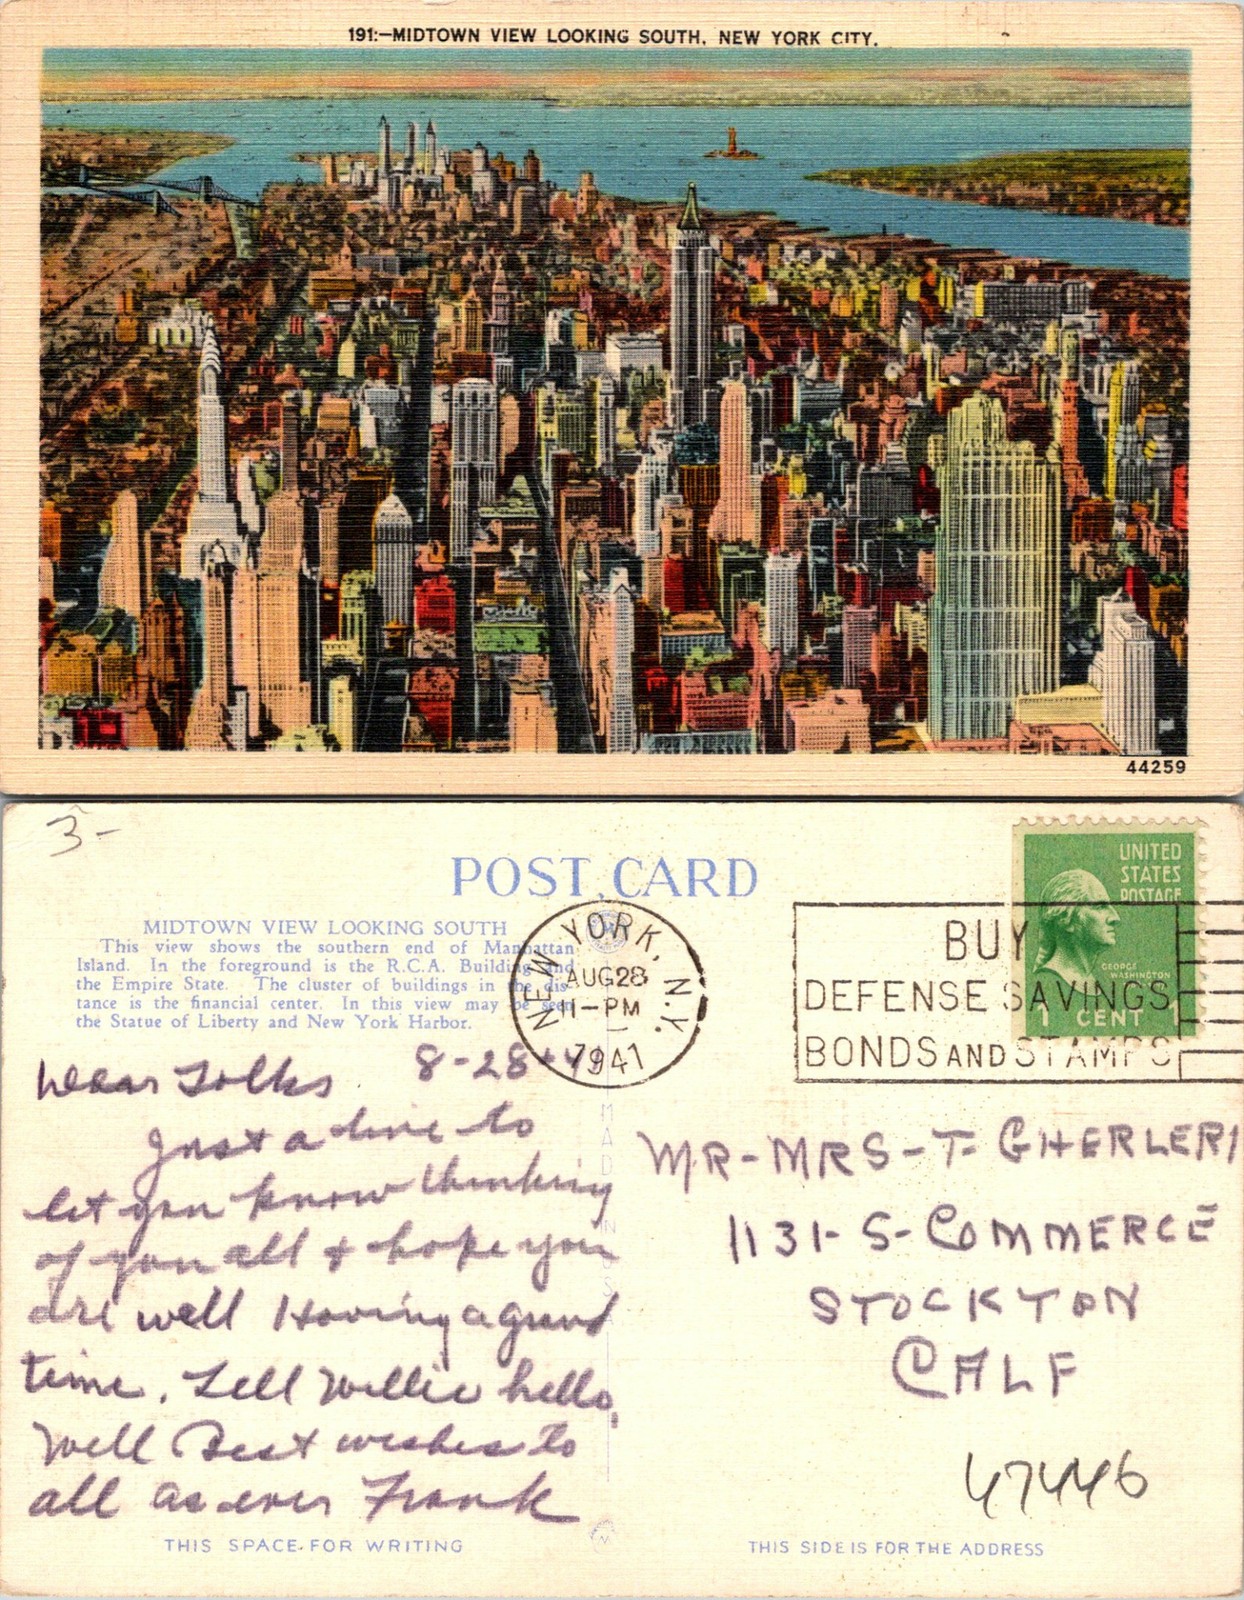 191:-MIDTOWN VIEW LOOKING SOUTH, NEW YORK CITY.
44259
3-
POST CARD
MIDTOWN VIEW LOOKING SOUTH
This view shows the southern end of Manhattan
Island. In the foreground is the R.C.A. Building and
the Empire State. The cluster of buildings in the dis-
tance is the financial center. In this view may be seen
the Statue of Liberty and New York Harbor.
NEW YORK, N.Y.
AUG 28
11-PM
1941
BUY
DEFENSE SAVINGS
BONDS AND STAMPS
UNITED
STATES
POSTAGE
GEORGE
WASHINGTON
1 CENT 1
8-28-41
Dear Folks
Just a line to
let you know thinking
of you all & hope you
are well Having a grand
time. Tell Willie hello,
Well Best wishes to
all as ever Frank
MR-MRS-T-GHERLERI
1131-S-COMMERCE
STOCKTON
CALF
47446
MADE IN USA
THIS SPACE FOR WRITING
THIS SIDE IS FOR THE ADDRESS